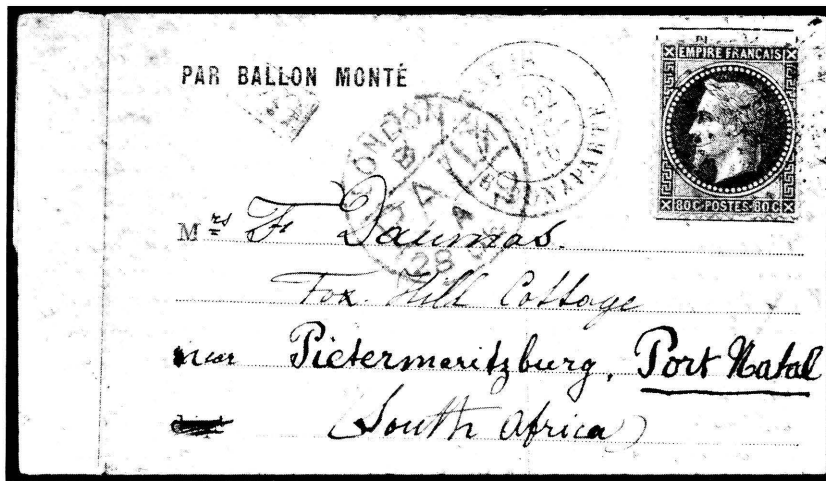 PAR BALLON MONTÉ
EMPIRE FRANÇAIS
80C·POSTES·80C
LONDON
28
22
BONAPARTE
Mrs F Daumas.
Fox Hill Cottage
near Pietermaritzburg, Port Natal
South Africa